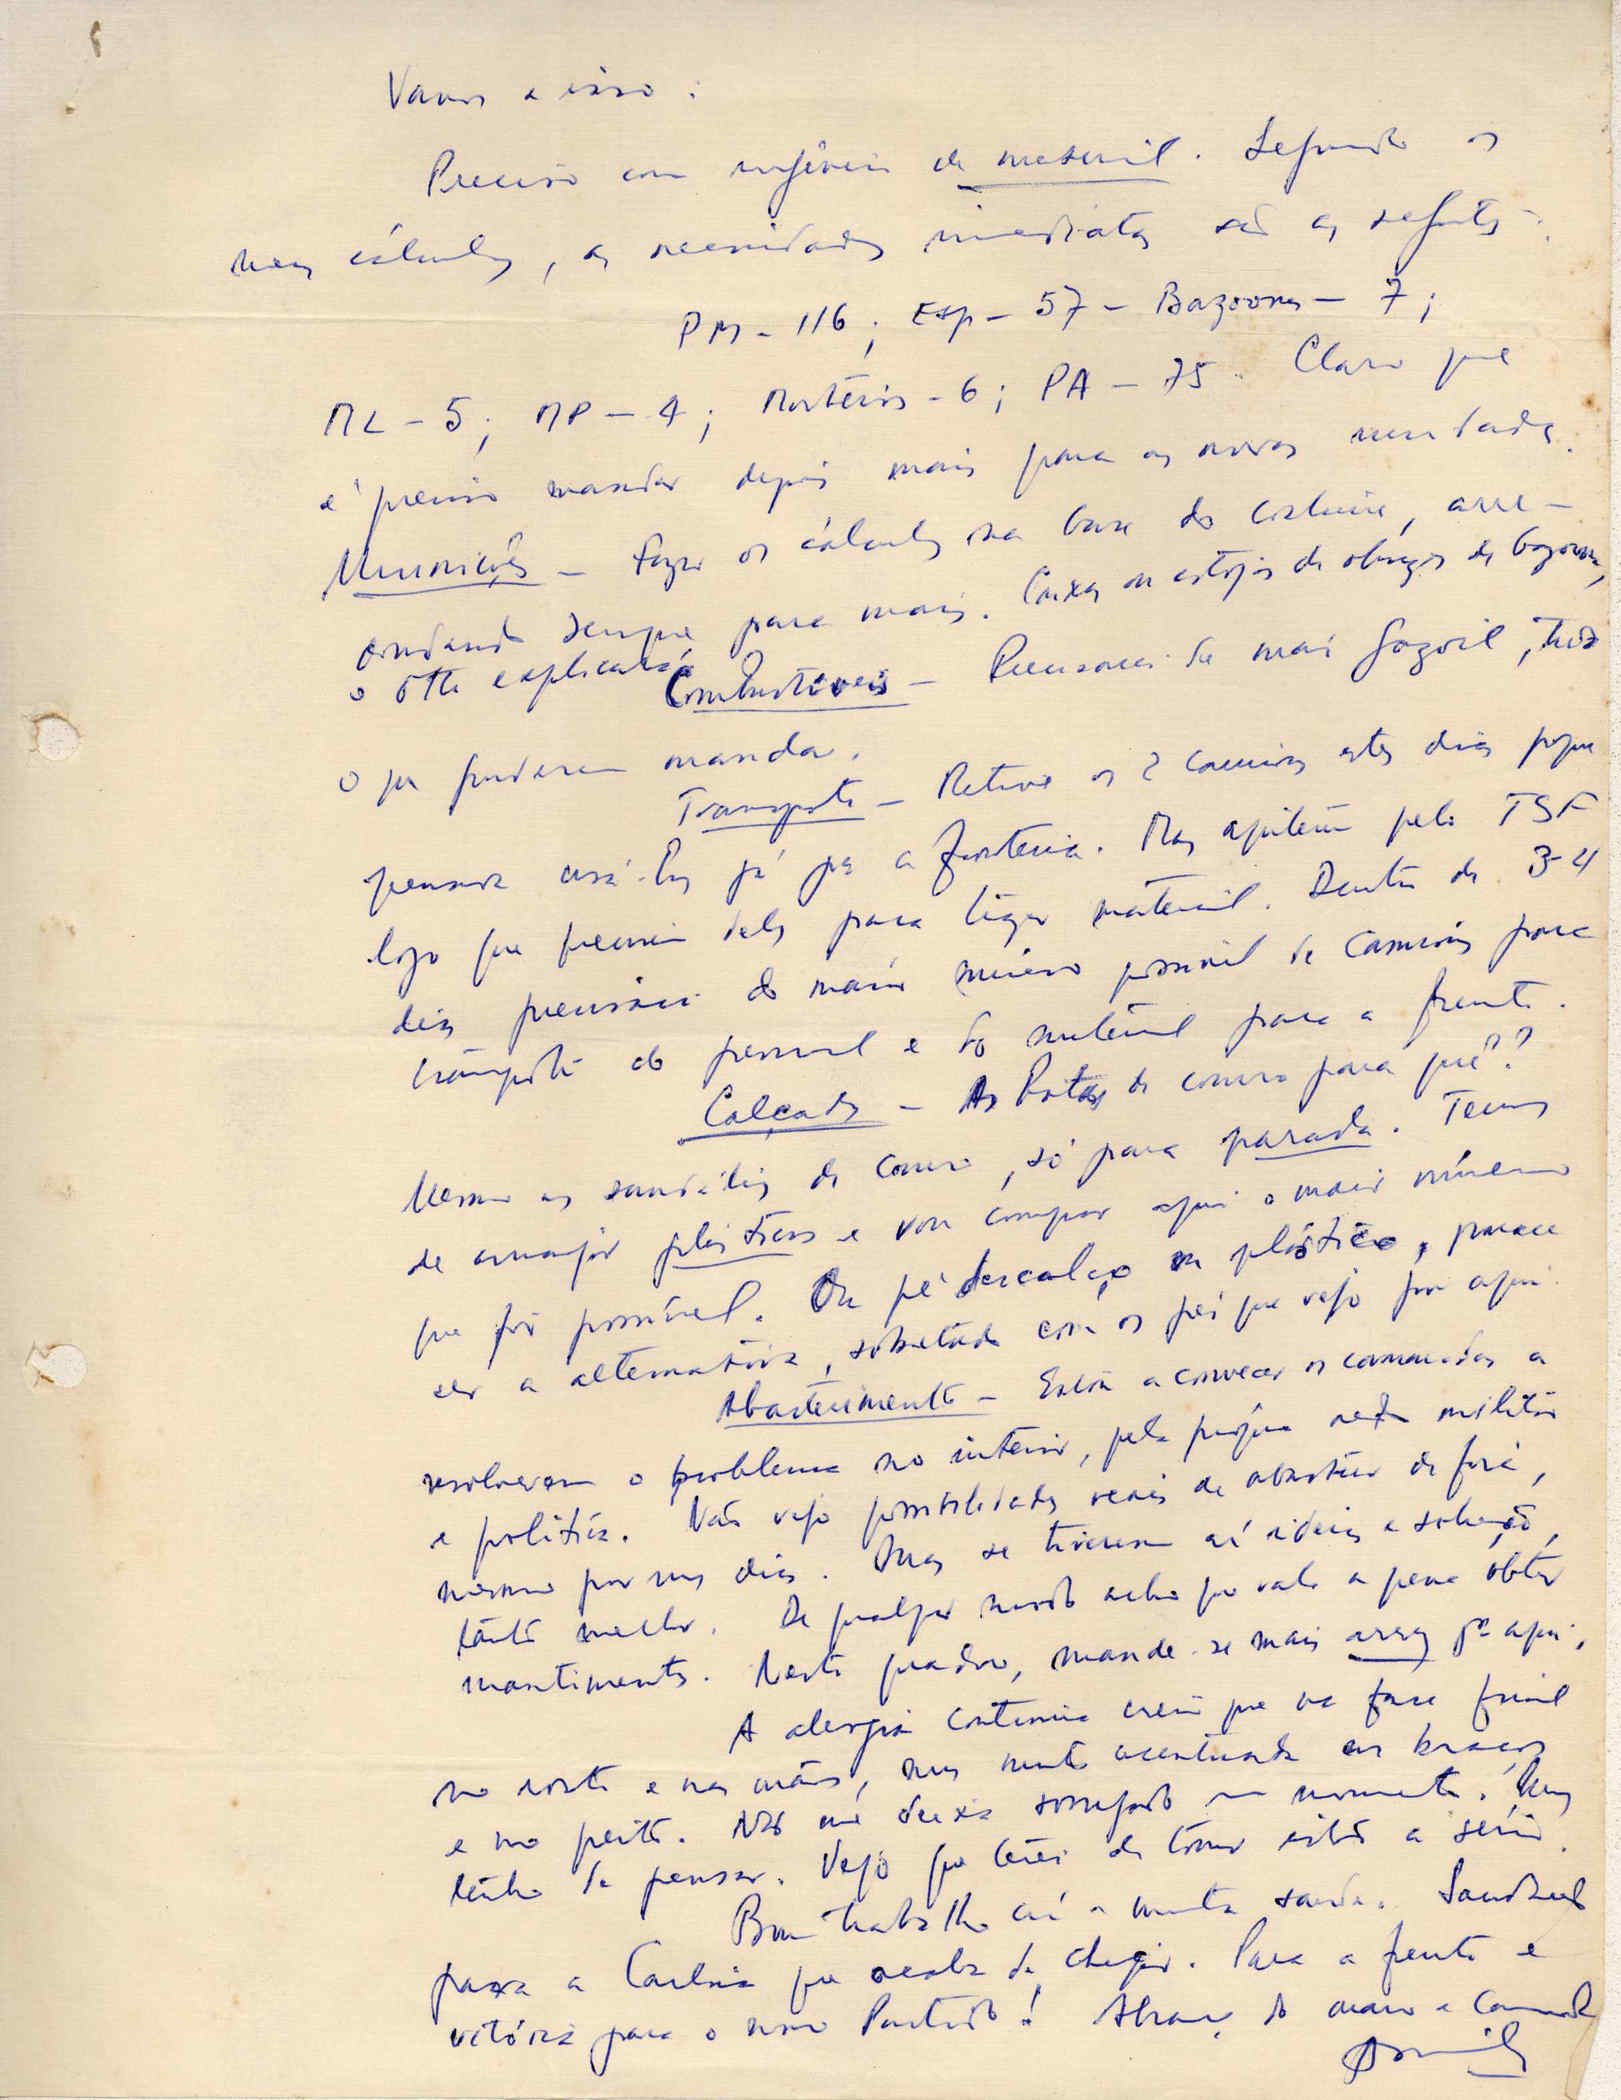 Vamos a isso:
Preciso com urgência de material. Segundo os
meus cálculos, as necessidades imediatas são as seguintes:
PM - 116; Esp - 57 - Bazookas - 7;
ML - 5; MP - 4; Morteiros - 6; PA - 75. Claro que
é preciso mandar depois mais para as novas unidades.
Munições - Fazer os cálculos na base do costume, arre-
dondando sempre para mais. Caixas ou estojos de obuzes de bazooka,
o Otto explicará
Combustíveis - Precisarei de mais gazoil, tudo
o que puderem mandar.
Transporte - Retive os 2 camiões estes dias porque
pensava usá-los já para a fronteira. Mas avisem pela TSF
logo que precisem deles para trazer material. Dentro de 3-4
dias precisarei do maior número possível de camiões para
transporte do pessoal e do material para a frente.
Calçado - As Botas de couro para quê??
Mesmo as sandálias de couro, só para parada. Temos
de arranjar plásticos e vou comprar aqui o maior número
que for possível. Ou pé descalço ou plástico, parece
ser a alternativa, sobretudo com os pés que vejo por aqui.
Abastecimento - Estou a convencer os camaradas a
resolverem o problema no interior, pela própria rede militar
e política. Não vejo possibilidades reais de abastecer de fora,
mesmo por uns dias. Mas se tiverem aí ideias e solução,
tanto melhor. De qualquer modo acho que vale a pena obter
mantimentos. Neste quadro, mande-se mais arroz pª aqui.
A alergia continua creio que na fase final
no rosto e nas mãos, mas muito acentuada nos braços
e no peito. Não me deixa sossegado um momento. Mas
tenho de pensar. Vejo que terei de tomar isto a sério.
Bom trabalho aí e muita saúde. Saudades
para a que acaba de chegar. Para a frente e
vitória para o nosso Partido! Abraço do mano e Camarada